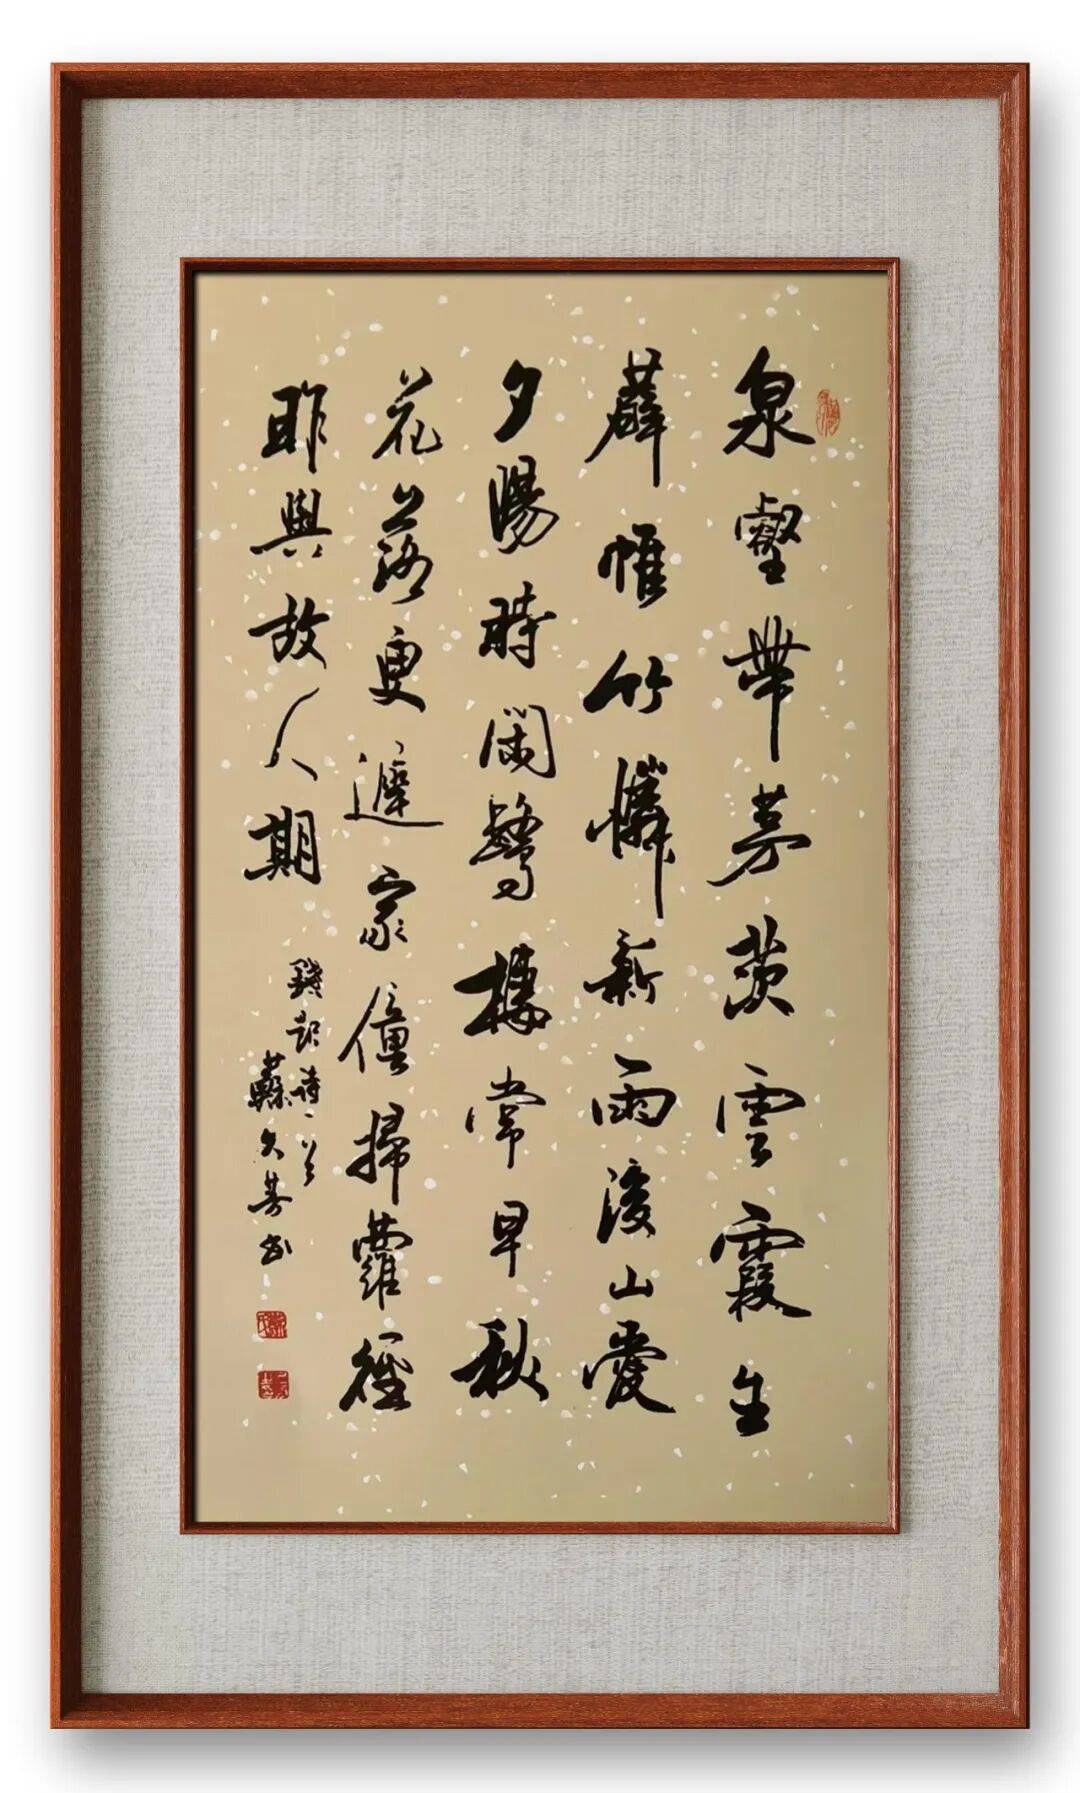 泉壑帶茅茨雲霞生
薜帷竹憐新雨後山愛
夕陽時閑鷺棲常早秋
花落更遲家僮掃蘿徑
昨與故人期
錢起詩一首
蘇久芳書